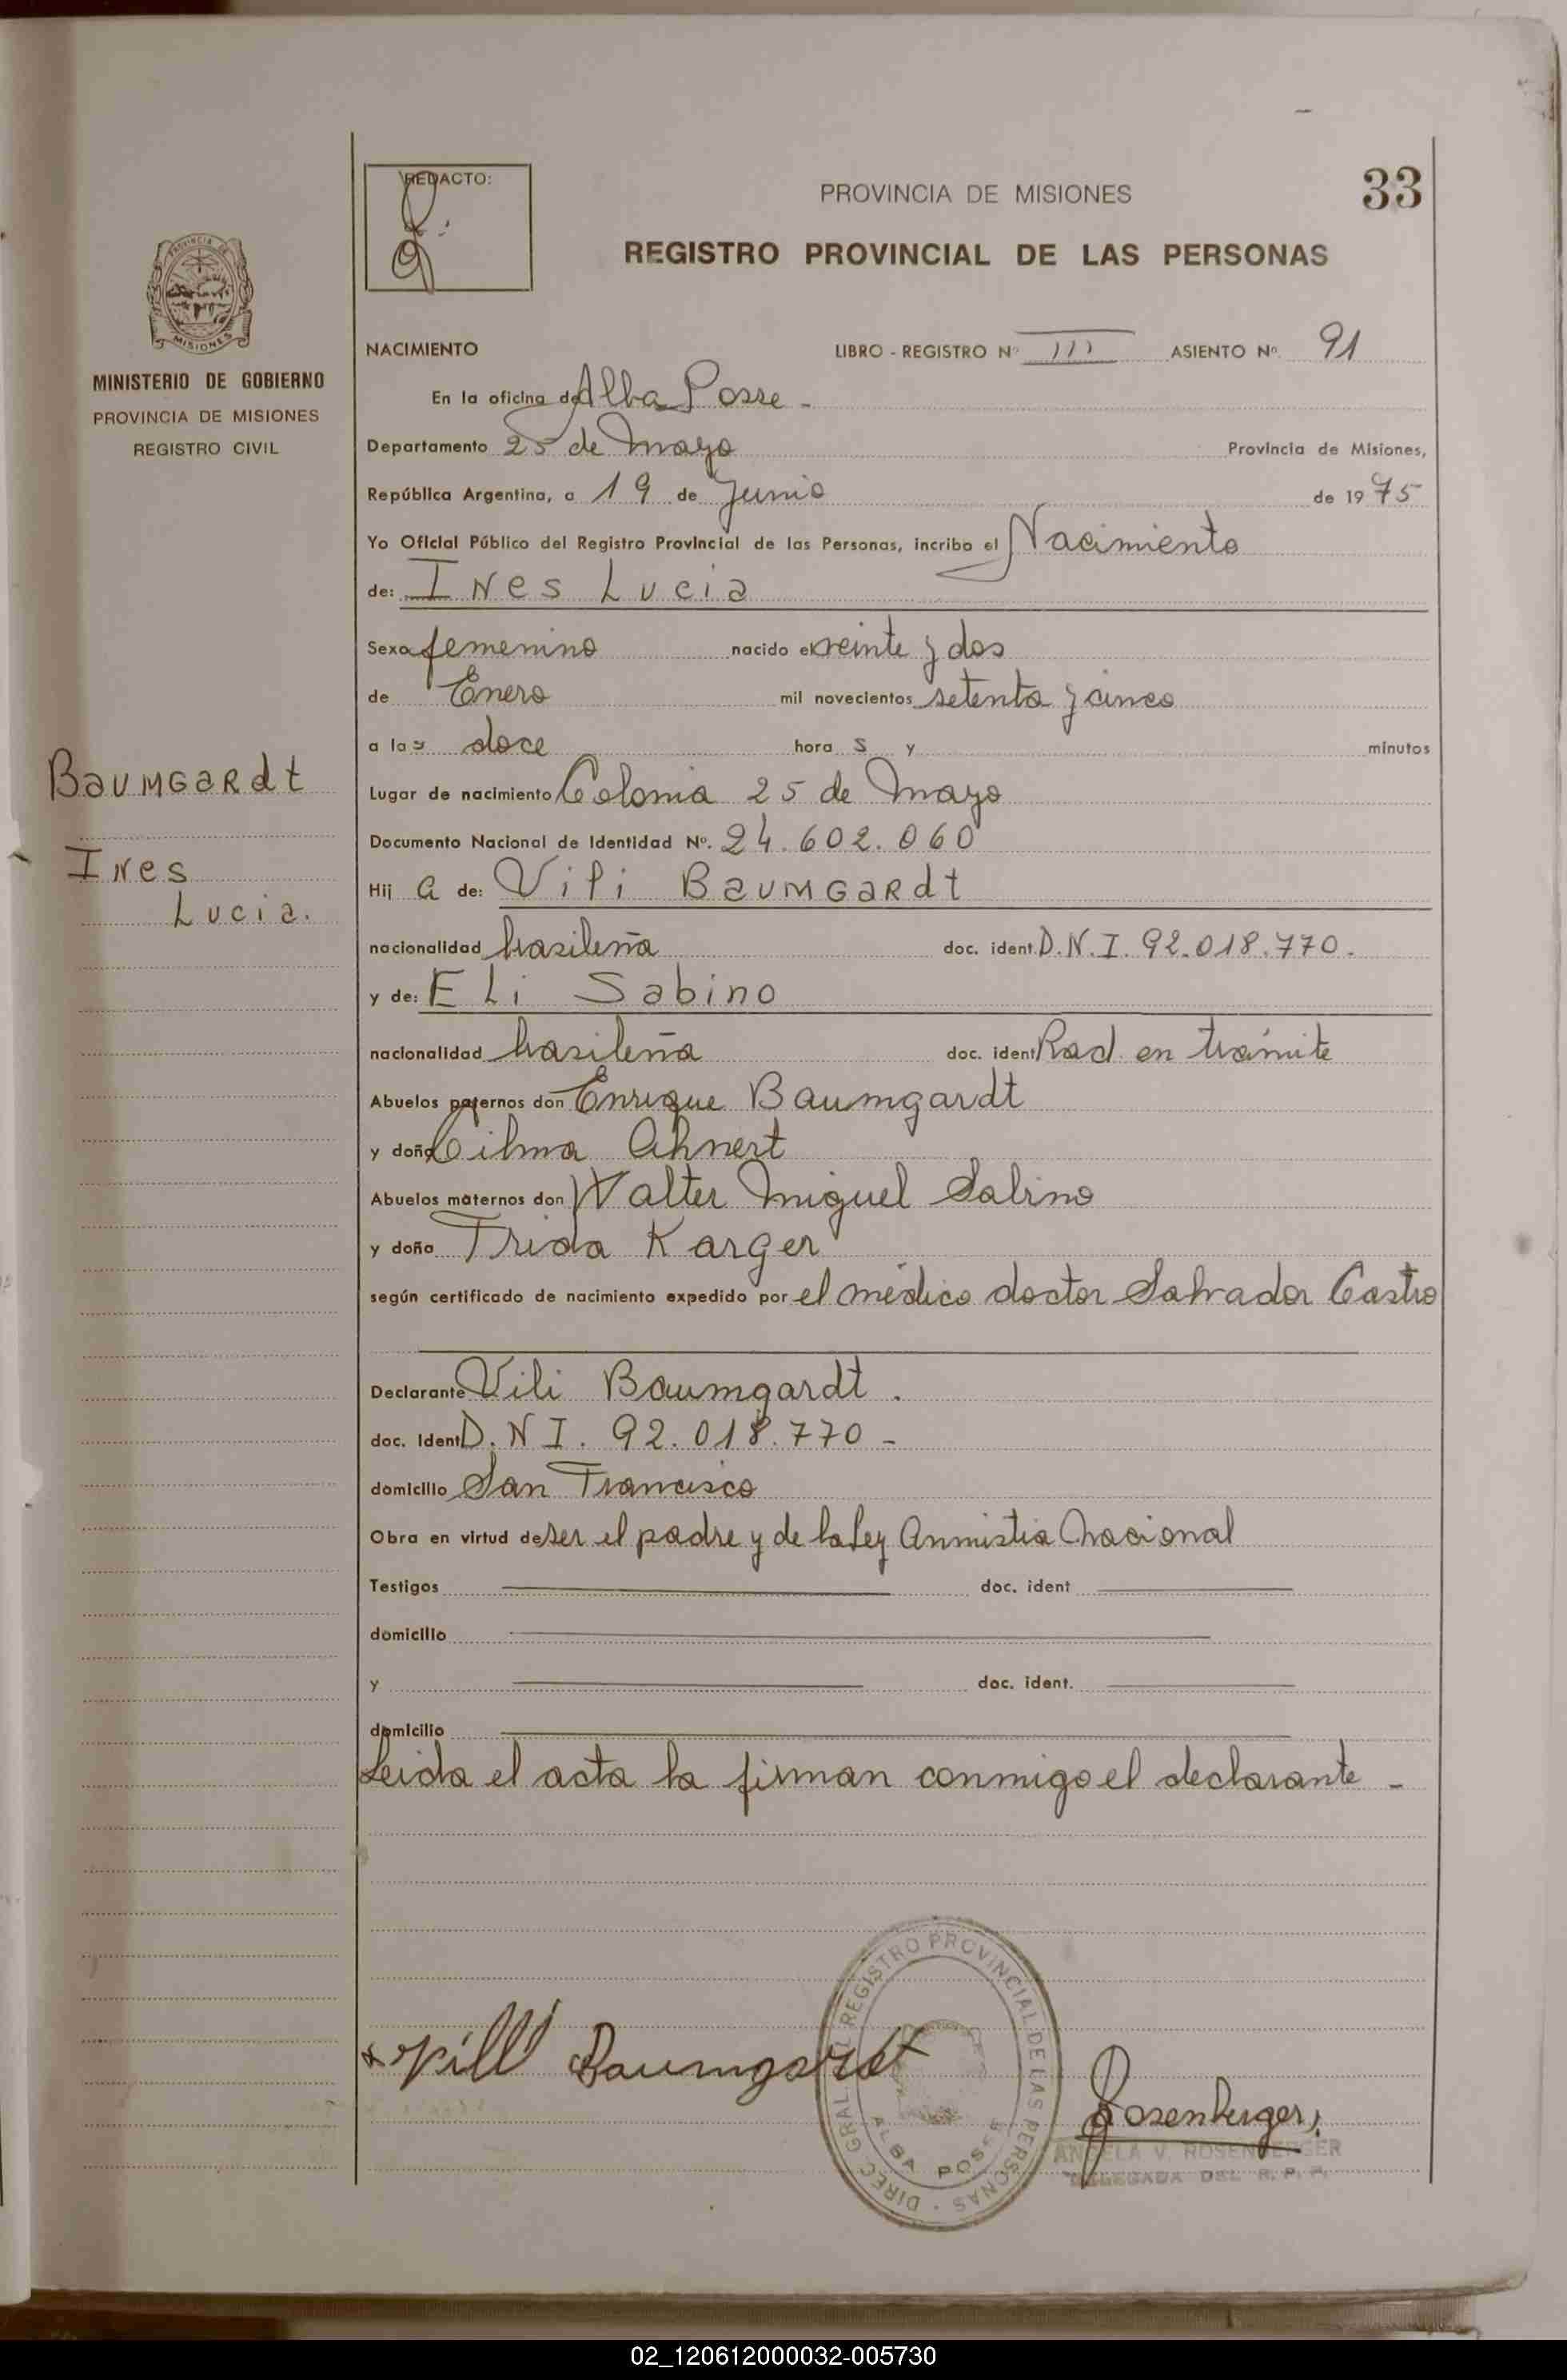 33
REDACTO:
PROVINCIA DE MISIONES
REGISTRO PROVINCIAL DE LAS PERSONAS
PROVINCIA DE MISIONES
MINISTERIO DE GOBIERNO
PROVINCIA DE MISIONES
REGISTRO CIVIL
NACIMIENTO LIBRO - REGISTRO Nº III ASIENTO Nº. 91
En la oficina de Alba Posse -
Departamento 25 de Mayo Provincia de Misiones,
República Argentina, a 19 de Junio de 1975
Yo Oficial Público del Registro Provincial de las Personas, incribo el Nacimiento
de: Ines Lucia
Sexo femenino nacido el veinte y dos
de Enero mil novecientos setenta y cinco
a las doce horas y minutos
Baumgardt
Ines
Lucia.
Lugar de nacimiento Colonia 25 de Mayo
Documento Nacional de Identidad Nº. 24.602.060
Hija de: Vili Baumgardt
nacionalidad brasileña doc. ident. D.N.I. 92.018.770.
y de: Eli Sabino
nacionalidad brasileña doc. ident Rad. en trámite
Abuelos paternos don Enrique Baumgardt
y doña Cilma Ahnert
Abuelos maternos don Walter Miguel Sabino
y doña Frida Karger
según certificado de nacimiento expedido por el médico doctor Salvador Castro
Declarante Vili Baumgardt.
doc. Ident D.N I. 92.018.770 -
domicilio San Francisco
Obra en virtud de ser el padre y de la Ley Anmistia Nacional
Testigos doc. ident
domicilio
y doc. ident.
domicilio
Leida el acta la firman conmigo el declarante -
Villi Baumgardt
DIREC. GRAL. REGISTRO PROVINCIAL DE LAS PERSONAS
ALBA POSSE
Rosenberger
ANGELA V. ROSENBERGER
DELEGADA DEL R. P. P.
02_120612000032-005730